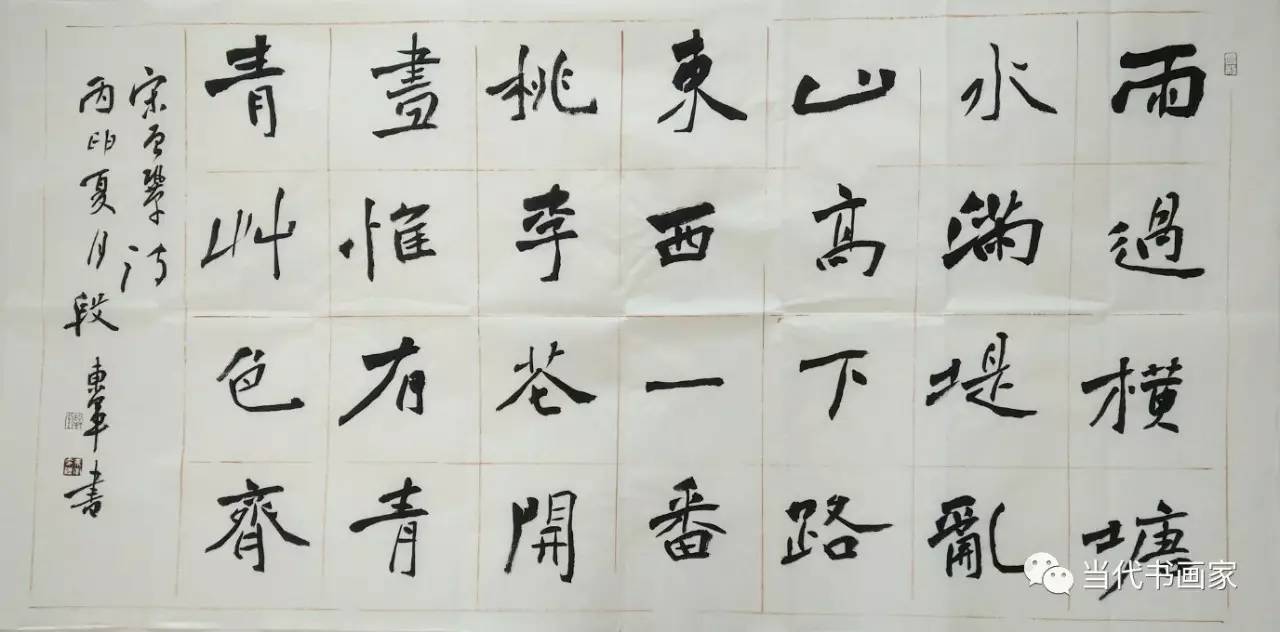 雨過橫塘
水滿堤亂
山高下路
東西一番
桃李花開
盡惟有青
青艸色齊
宋曾鞏詩
丙申夏月段東軍書
当代书画家